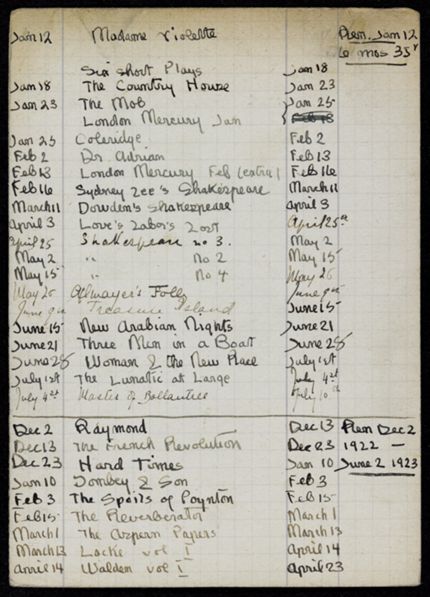 Jan 12 Madame Violette Ren. Jan 12
6 mos 35
Six Short Plays Jan 18
Jan 18 The Country House Jan 23
Jan 23 The Mob Jan 25
London Mercury Jan
Jan 25 Coleridge Feb 2
Feb 2 Dr. Adrian Feb 13
Feb 13 London Mercury Feb (extra) Feb 16
Feb 16 Sydney Lee's Shakespeare March 11
March 11 Dowden's Shakespeare April 3
April 3 Love's Labor's Lost April 25th
April 25 Shakespeare no 3. May 2
May 2 " no 2 May 15
May 15 " no 4 May 26
May 26 Almayer's Folly June 9th
June 9th Treasure Island June 15
June 15 New Arabian Nights June 21
June 21 Three Men in a Boat June 28
June 28 Woman & the New Place July 1st
July 1st The Lunatic at Large July 4th
July 4th Master of Ballantree July 10th
Dec 2 Raymond Dec 13 Ren Dec 2
Dec 13 The French Revolution Dec 23 1922 —
Dec 23 Hard Times Jan 10 June 2 1923
Jan 10 Dombey & Son Feb 3
Feb 3 The Spoils of Poynton Feb 15
Feb 15 The Reverberator March 1
March 1 The Aspern Papers March 13
March 13 Locke vol I April 14
April 14 Walden vol I April 23